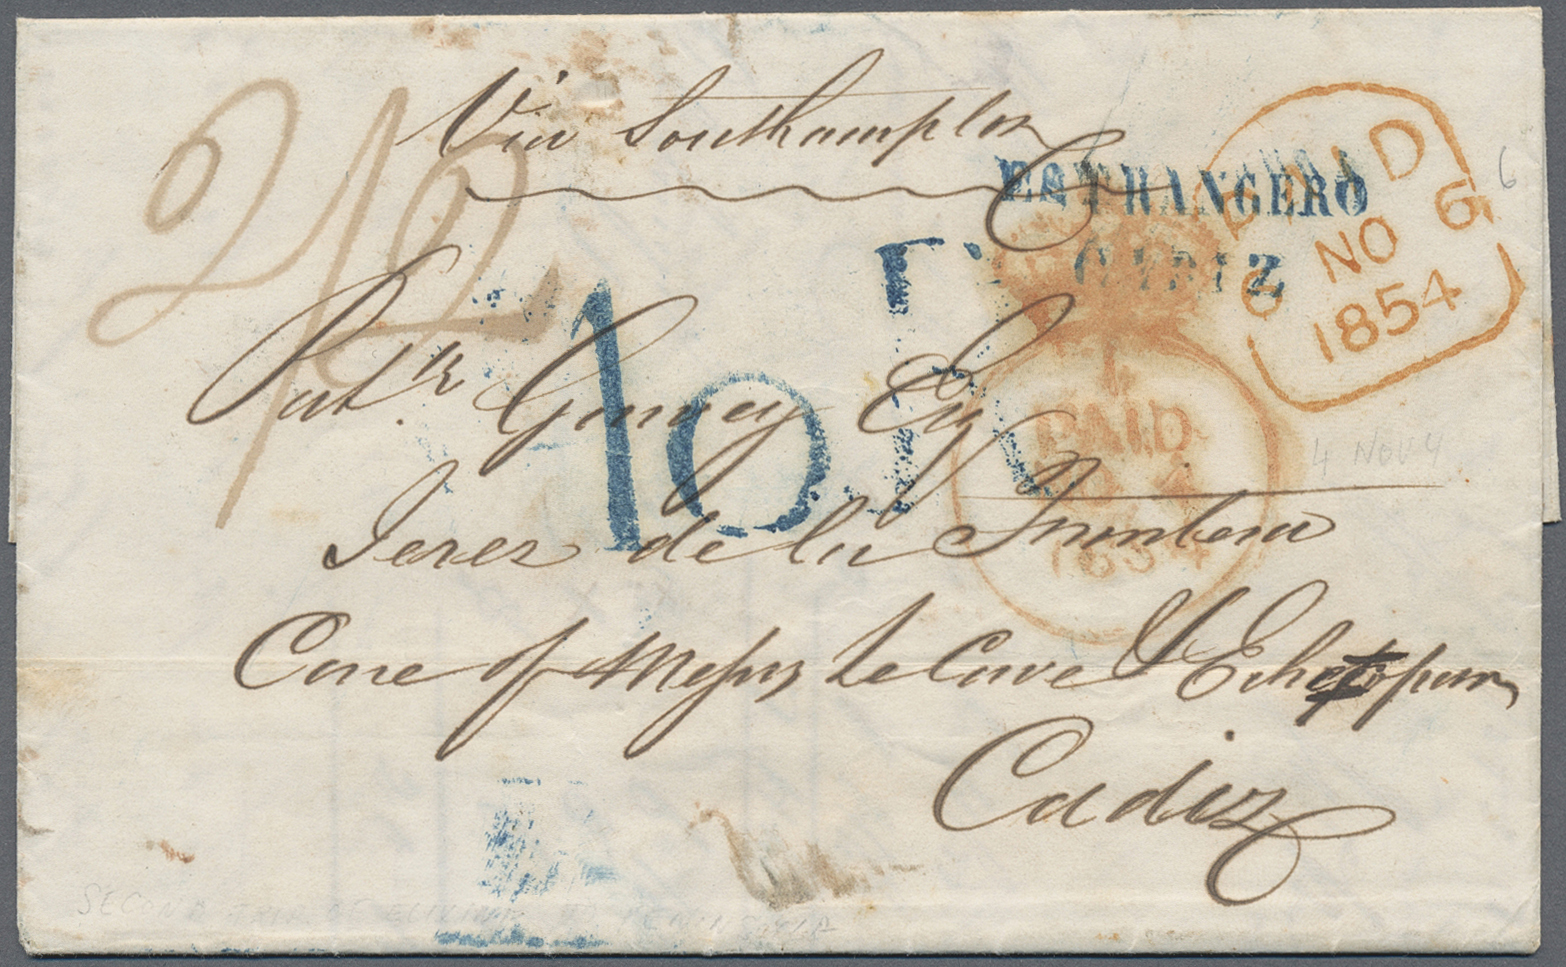 Via Southampton
2/2
ESTRANGERO
CADIZ
PAID
6 NO 6
1854
6
Patk. Garvey Esq
10 R
PAID
NO 4
1854
4 NOV Y
Jerez de la Frontera
Care of Messrs Le Cave & Echecopar
Cadiz
SECOND TRIP OF TO PENINSULA